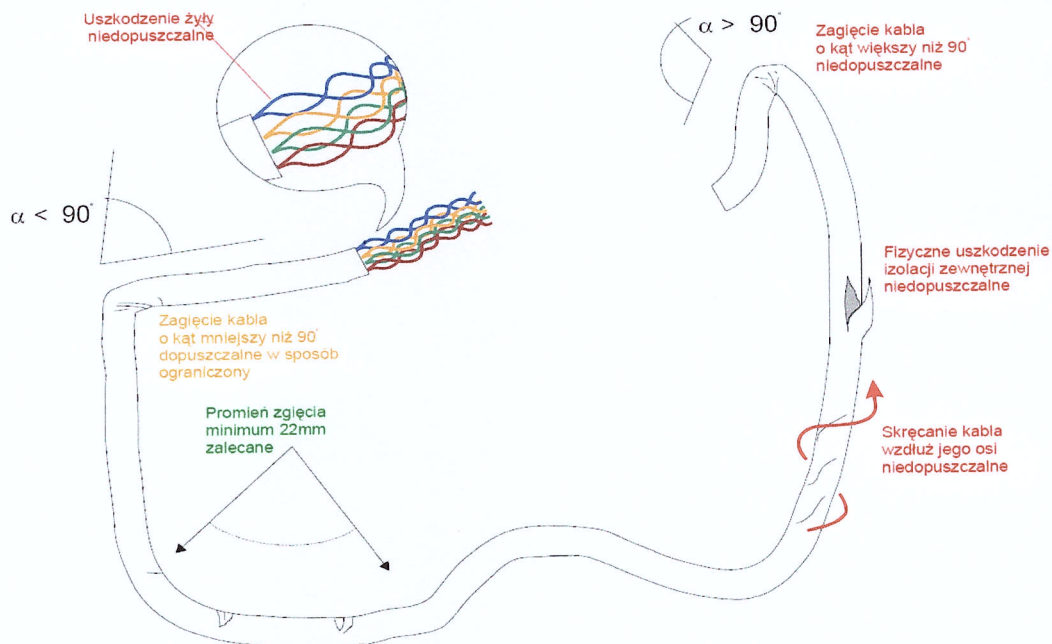 Uszkodzenie żyły
niedopuszczalne
α > 90°
Zagięcie kabla
o kąt większy niż 90°
niedopuszczalne
α < 90°
Fizyczne uszkodzenie
izolacji zewnętrznej
niedopuszczalne
Zagięcie kabla
o kąt mniejszy niż 90°
dopuszczalne w sposób
ograniczony
Promień zgięcia
minimum 22mm
zalecane
Skręcanie kabla
wzdłuż jego osi
niedopuszczalne